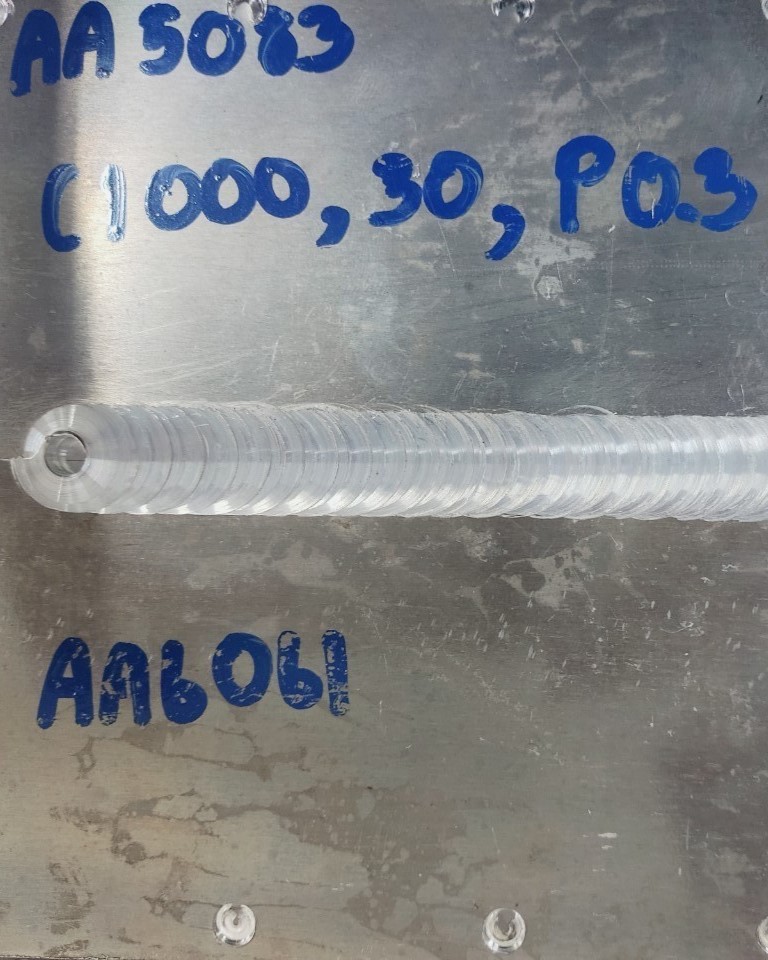 AA 5083
C1000, 30, P0.3
AA6061